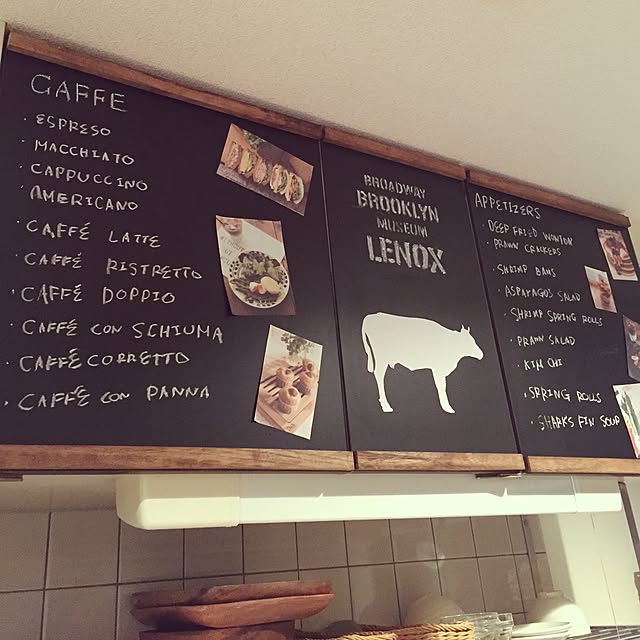 GAFFE
· ESPRESO
· MACCHIATO
· CAPPUCCINO
· AMERICANO
· CAFFÉ LATTE
· CAFFÉ RISTRETTO
· CAFFÉ DOPPIO
· CAFFÉ CON SCHIUMA
· CAFFÉ CORRETTO
· CAFFÉ CON PANNA
BROADWAY
BROOKLYN
MUSEUM
LENOX
APPETIZERS
· DEEP FRIED WONTON
· PRAWN CRACKERS
· SHRIMP BAHS
· ASPAPAGOS SALAD
· SHRIMP SPRING ROLLS
· PRAWN SALAD
· KIM CHI
· SPRING ROLLS
· SHARKS FIN SOUP